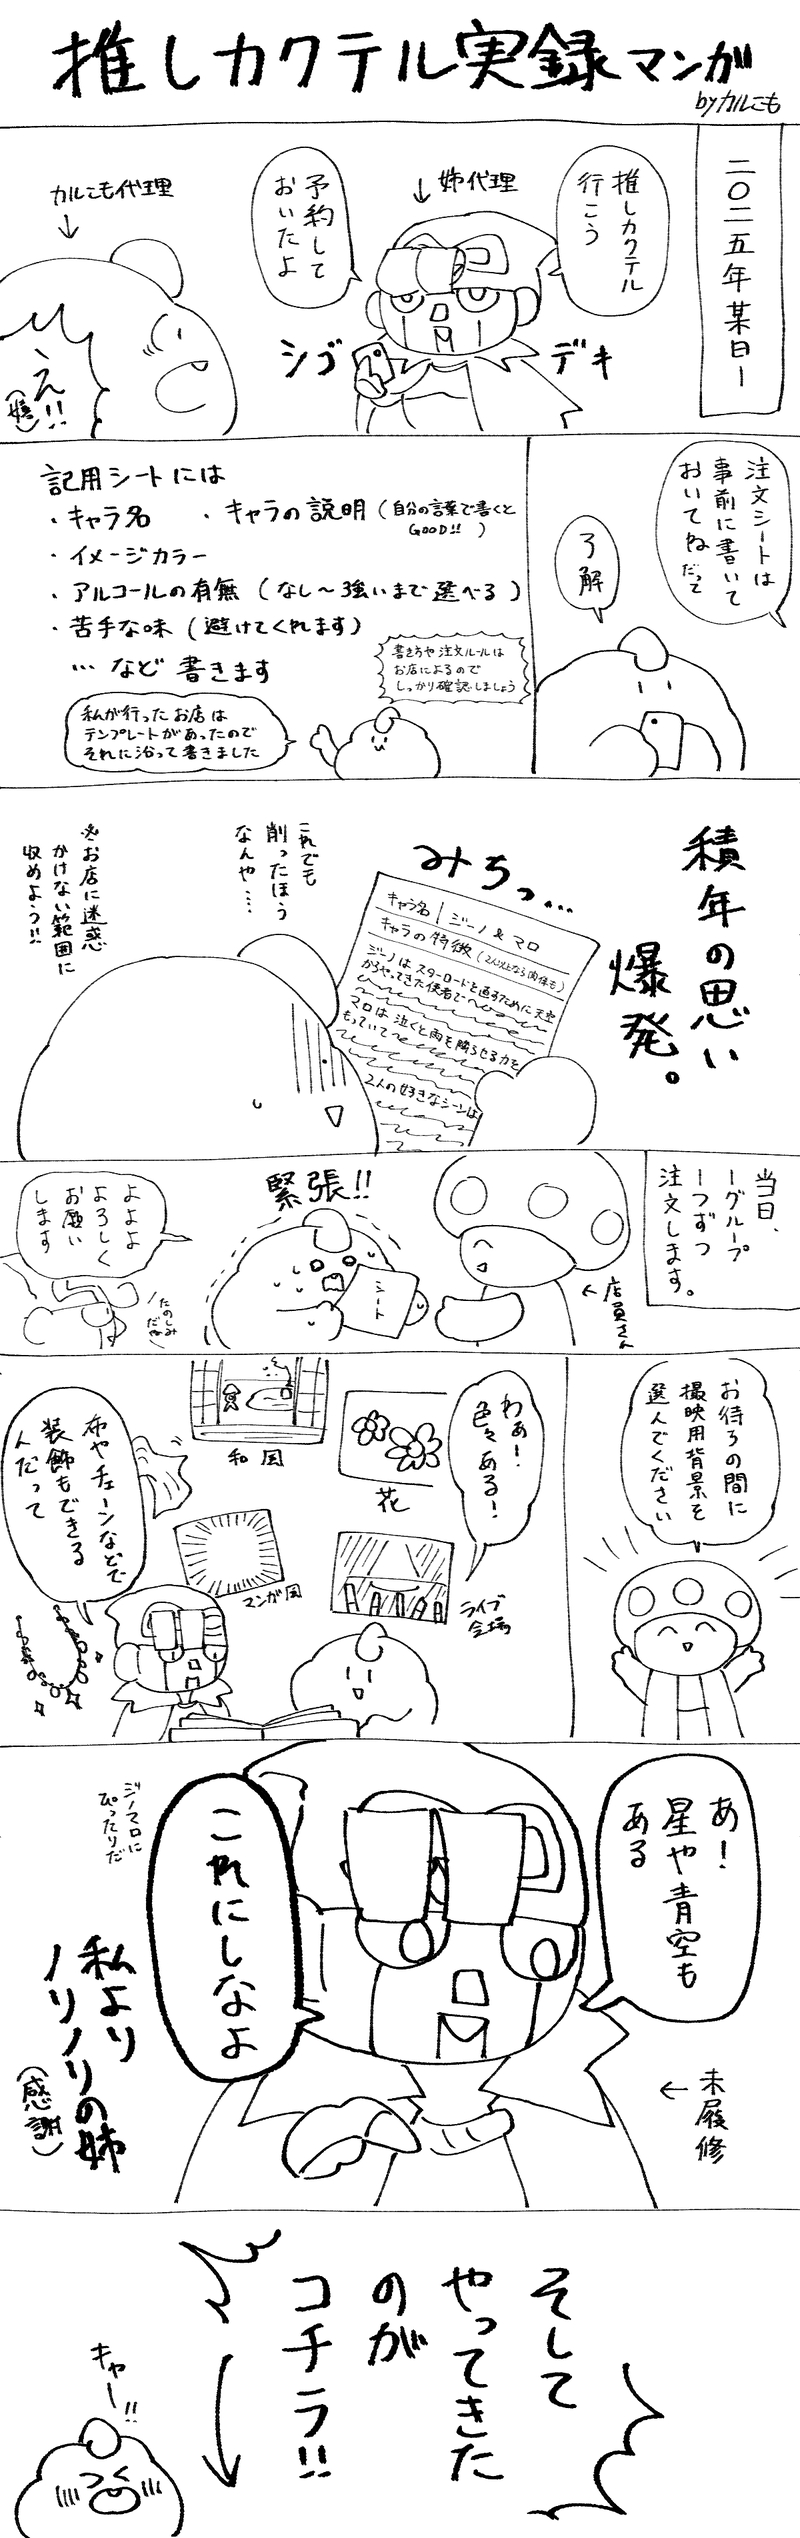 推しカクテル実録マンガ
byカルこも
二〇二五年某日ー
推しカクテル
行こう
姉代理
予約して
おいたよ
シゴ
デキ
カルこも代理
え!!
注文シートは
事前に書いて
おいてねだって
了解
記用シートには
・キャラ名
・キャラの説明(自分の言葉で書くと
GOOD!!)
・イメージカラー
・アルコールの有無(なし〜強いまで選べる)
・苦手な味(避けてくれます)
…など書きます
書き方や注文ルールは
お店によるので
しっかり確認しましょう
私が行ったお店は
テンプレートがあったので
それに沿って書きました
積年の思い
爆発。
みちっ…
キャラ名 ジーノ&マロ
キャラの特徴(2人以上なら関係も)
ジーノはスターロードを直すために天空
からやってきた使者で
マロは泣くと雨を降らせる力を
もっていて
2人の好きなシーンは
これでも
削ったほう
なんや……
※お店に迷惑
かけない範囲に
収めよう!!
当日、
一グループ
一つずつ
注文します。
店員さん
緊張!!
シート
よよよ
よろしく
お願い
します
たのしみ
だね
お待ちの間に
撮映用背景を
選んでください
わぁー!
色々ある!
和風
花
マンガ風
ライブ
会場
布やチェーンなどで
装飾もできる
んだって
あ!
星や青空も
ある
これにしなよ
ジーノマロに
ぴったりだ
未履修
私より
ノリノリの姉
(感謝)
そして
やってきた
のが
コチラ!!
キャー!!